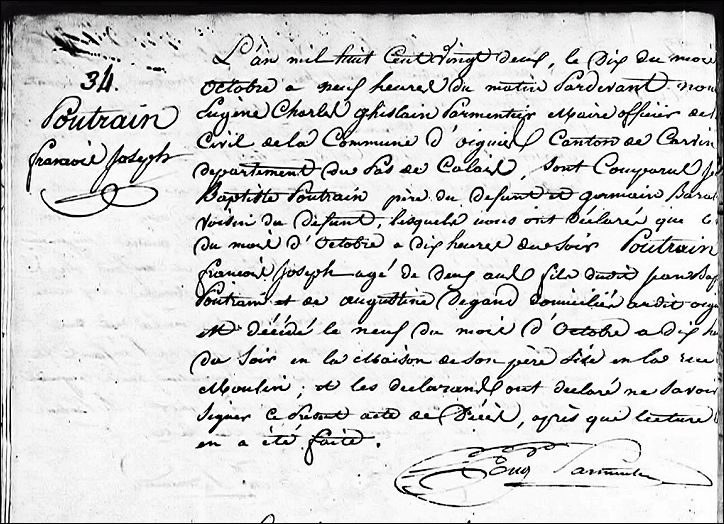 34.
Poutrain
francois Joseph
L'an mil huit Cent vingt deux, le Dix du mois
Octobre a neuf heures du matin Pardevant nous
Eugène Charles Ghislain Parmentier Maire officier de l
Civil de la Commune d'oignies Canton de Carvin
departement du Pas de Calais, sont Comparus
Baptiste Poutrain père du defunt et germain
voisin du defunt, lesquels nous ont déclaré que le
du mois d'Octobre a dix heures du soir Poutrain
francois Joseph agé de deux ans fils dudit jean Bap
Poutrain et de augustine Degand domiciliés audit oign
est décédé le neuf du mois d'Octobre a dix he
du Soir en la Maison de son père Sise en la rue
Moulin ; et les declarans ont declaré ne savoir
signer ce Présent acte de Décès, après que lecture
en a été faite.
Eug Parmentier